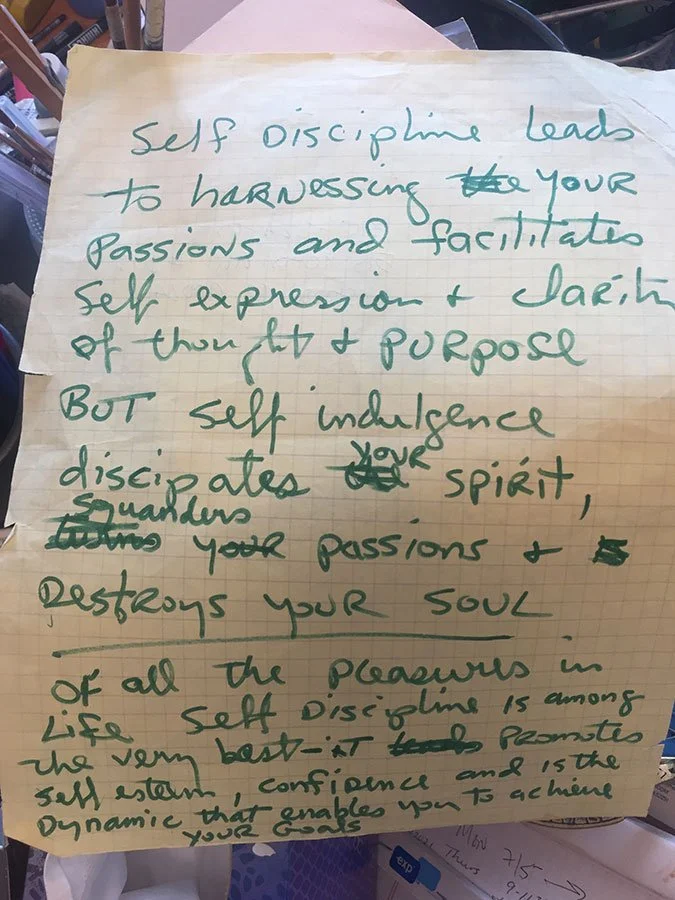 Self Discipline leads
to harnessing your
passions and facilitates
self expression + clarity
of thought + purpose
But self indulgence
discipates your spirit,
squanders your passions +
Destroys your soul
Of all the pleasures in
Life Self Discipline is among
the very best - it promotes
self esteem, confidence and is the
Dynamic that enables you to achieve
your Goals
Mon
Thurs
7/5
exp